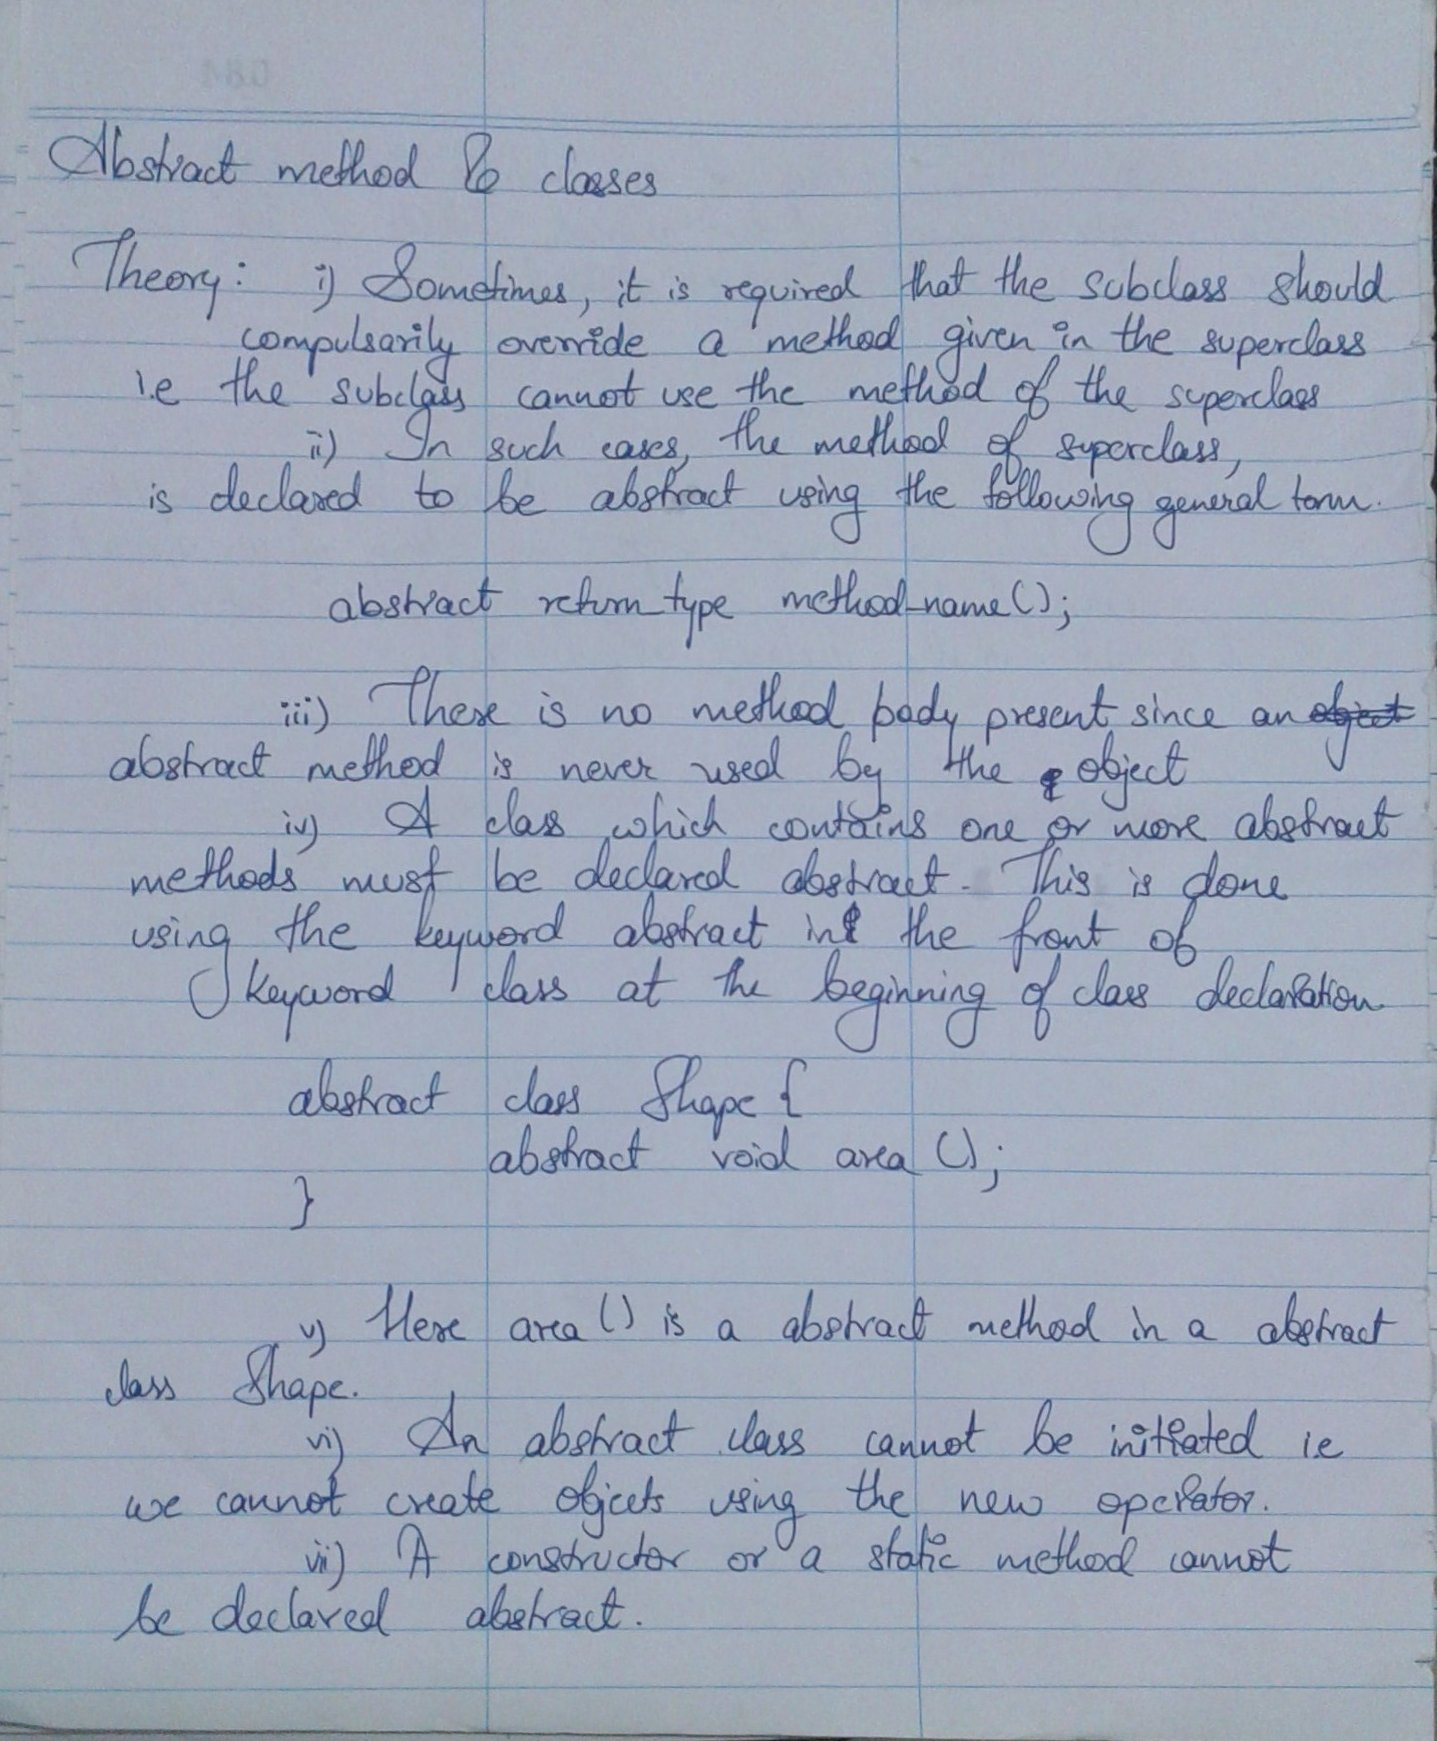 Abstract method & classes
Theory: i) Sometimes, it is required that the subclass should
compulsarily override a method given in the superclass
i.e the subclass cannot use the method of the superclass
ii) In such cases, the method of superclass,
is declared to be abstract using the following general form.
abstract return_type method_name();
iii) There is no method body present since an object
abstract method is never used by the object
iv) A class which contains one or more abstract
methods must be declared abstract. This is done
using the keyword abstract in the front of
keyword class at the beginning of class declaration
abstract class Shape {
abstract void area ();
}
v) Here area () is a abstract method in a abstract
class Shape.
vi) An abstract class cannot be initiated i.e
we cannot create objects using the new operator.
vii) A constructor or a static method cannot
be declared abstract.